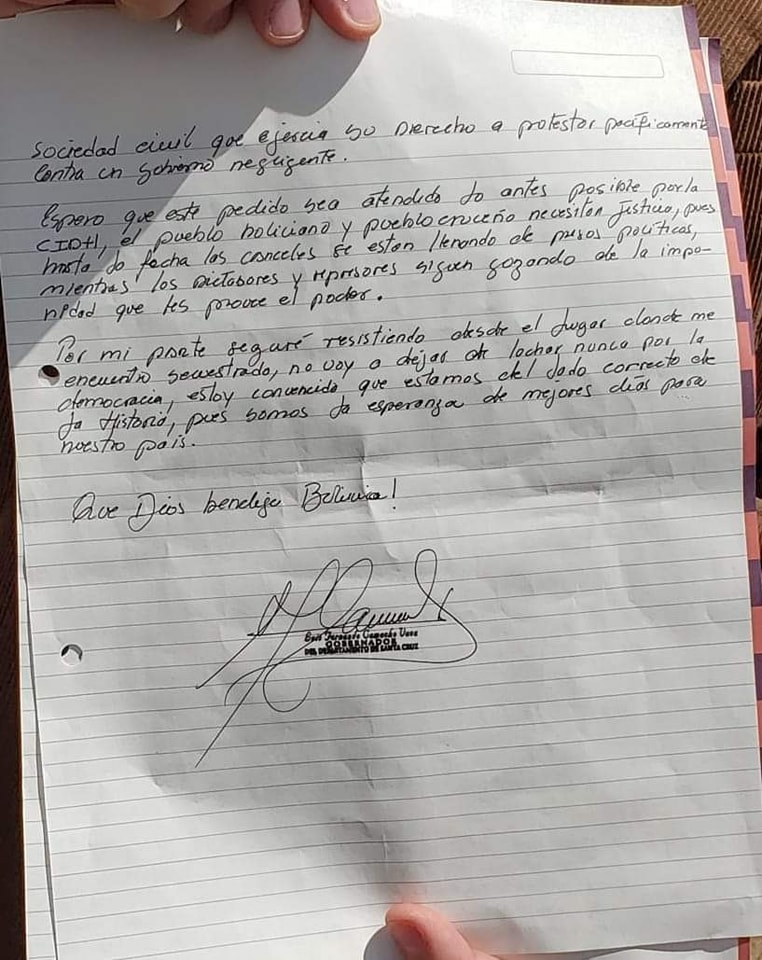 sociedad civil que ejercia su Derecho a protestar pacíficamente
contra un gobierno negligente.
Espero que este pedido sea atendido lo antes posible por la
CIDH, el pueblo boliviano y pueblo cruceño necesitan justicia, pues
hasta la fecha las carceles se estan llenando de presos políticos,
mientras los Dictadores y represores siguen gozando de la impu-
nidad que les provee el poder.
Por mi parte seguiré resistiendo desde el lugar donde me
encuentro secuestrado, no voy a dejar de luchar nunca por la
democracia, estoy convencido que estamos del lado correcto de
la Historia, pues somos la esperanza de mejores días para
nuestro país.
Que Dios bendiga Bolivia!
Luis Fernando Camacho Vaca
GOBERNADOR
DEL DEPARTAMENTO DE SANTA CRUZ